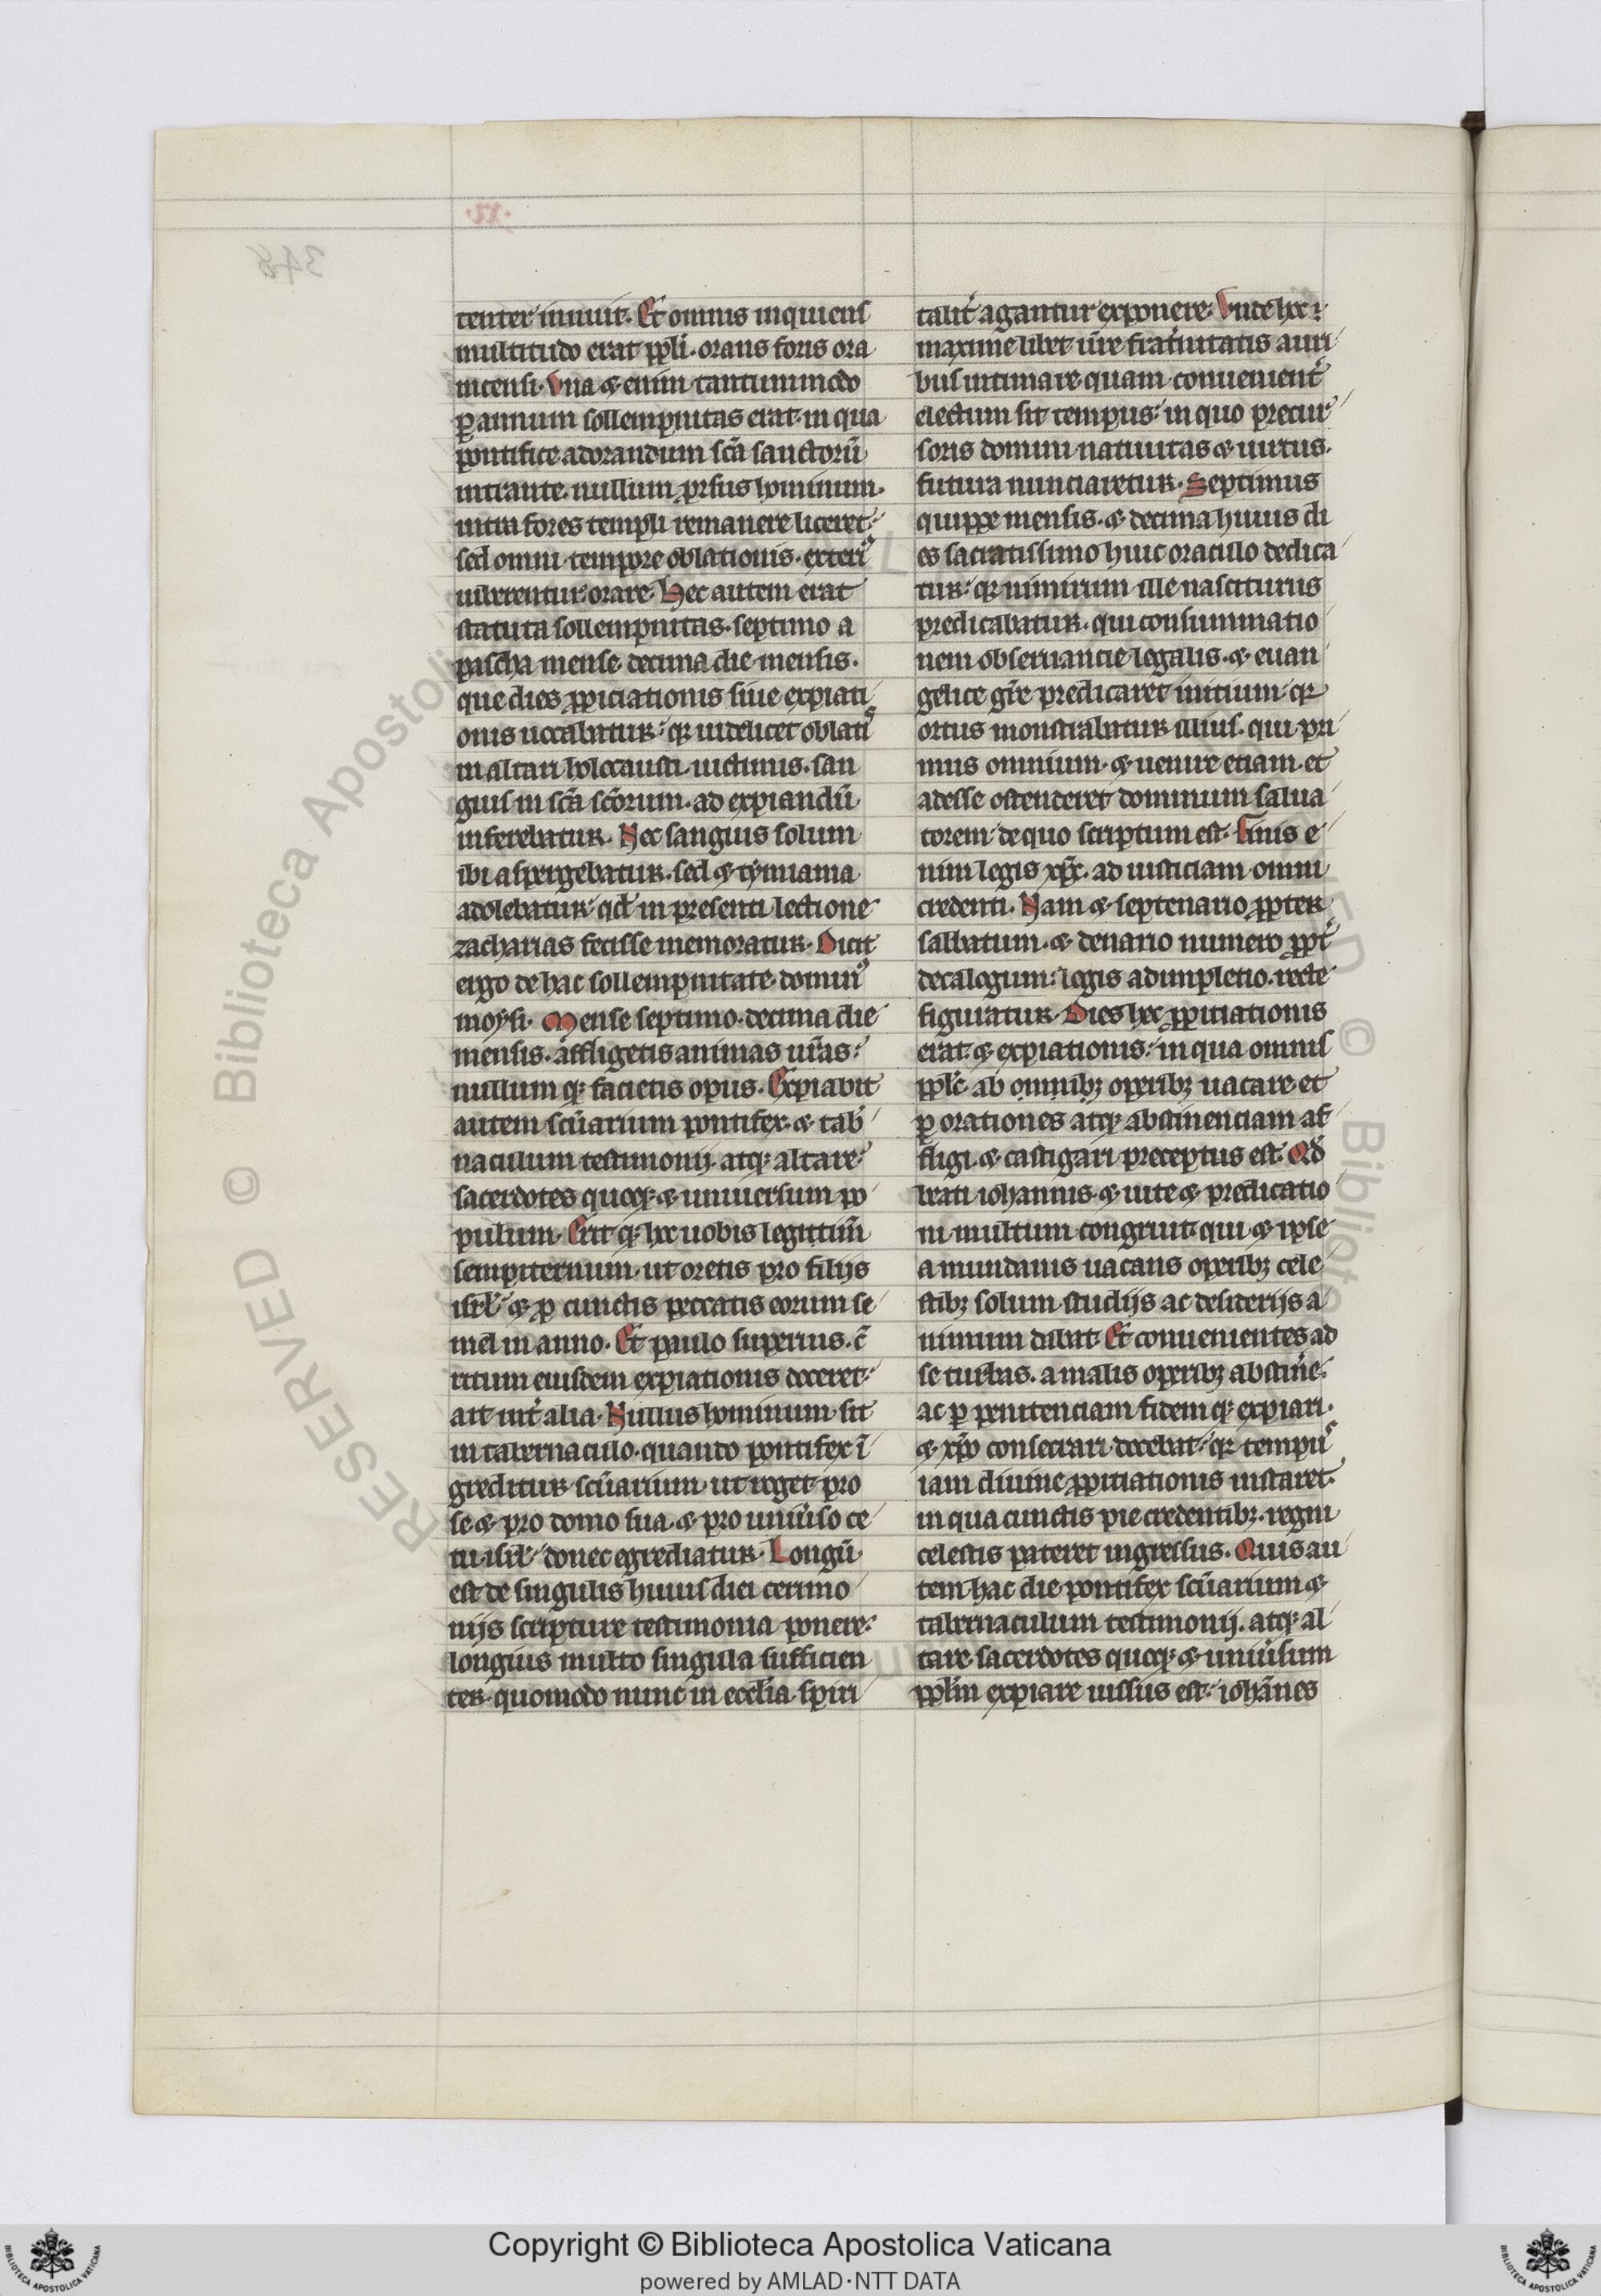 tenter innuit. Et omnis inquiens
multitudo erat ppli. orans foris ora
incensi. Vna & enim tantummodo
ꝑ annum sollempnitas erat. in qua
pontifice adorandum scā sanctorū
intrante. nullum ꝓrsus hominum.
intra fores templi remanere liceret.
sed omni tempore oblationis. exteriꝰ
iuberentur orare. Hec autem erat
statuta sollempnitas. septimo a
pascha mense. decima die mensis.
que dies ꝓpiciationis siue expiati
onis uocabatur. qꝛ uidelicet oblatiˢ
in altari holocausti uictimis. san
guis in scā scōrum. ad expiandū
inferebatur. Nec sanguis solum
ibi aspergebatur. sed & tymiama
adolebatur. qd̄ in presenti lectione
zacharias fecisse memoratur. Dicit
ergo de hac sollempnitate. dominꝰ
moysi. Mense septimo. decima die
mensis. affligetis animas ur̄as.
nullum qꝫ facietis opus. Expiabit
autem scūarium pontifex. & tab̓
naculum testimonij. atqꝫ altare.
sacerdotes quoqꝫ. & uniuersum po
pulum. Erit qꝫ hec uobis legittimū
sempiternum. ut oretis pro filijs
isrl̓. & ꝓ cunctis peccatis eorum se
mel in anno. Et paulo superius. cū
ritum eiusdem expiationis doceret.
ait int̓ alia. Nullus hominum sit
in tabernaculo. quando pontifex ī
greditur scūarium. ut roget pro
se & pro domo sua. & pro uniu̓so ce
tu isrl̓. donec egrediatur. Longū
est de singulis huius diei cerimo
nijs scripture testimonia ponere.
longius multo singula sufficien
ter. quomodo nunc in eccl̓ia spiri
talit̓ agantur exponere. Vnde hec ı
maxime libet ur̄e frat̓nitatis auri
bus intimare. quam conuenient̓
electum sit tempus. in quo precur
soris domini natiuitas & uirtus.
futura nunciaretur. Septimus
quippe mensis. & decima huius di
es sacratissimo huic oraculo dedica
tur. qꝛ nimirum ille nasciturus
predicabatur. qui consummatio
nem obseruancie legalis. & euan
gelice gr̄e predicaret initium. qꝛ
ortus monstrabatur illius. qui pri
mus omnium. & uenire etiam. et
adesse ostenderet dominum salua
torem. de quo scriptum est. Finis e
nim legis xp̄c. ad iusticiam omni
credenti. Nam & septenario ꝓpter
sabbatum. & denario numero ꝓpt̓
decalogum. legis adimpletio. recte
figuratur. Dies hec ꝓpitiationis
erat. & expiationis. in qua omnis
ppl̓s ab omnibꝫ operibꝫ uacare. et
ꝑ orationes atqꝫ abstinenciam af
fligi. & castigari preceptus est. Qd̓
beati iohannis. & uite & predicatio
ni multum congruit. qui & ipse
a mundanis uacans operibꝫ cele
stibꝫ solum studijs ac desiderijs a
nimum dabat. Et conuenientes ad
se turbas. a malis operibꝫ abstin̓e.
ac ꝑ penitenciam fidemqꝫ expiari.
& xp̄o consecrari docebat. qꝛ tempuˢ
iam diuine ꝓpitiationis instaret.
in qua cunctis pie credentibꝫ. regni
celestis pateret ingressus. Quis au
tem hac die pontifex scūarium &
tabernaculum testimonij. atqꝫ al
tare. sacerdotes quoqꝫ. & uniu̓sum
ppl̓m expiare iussus est. iohānes
Copyright © Biblioteca Apostolica Vaticana
powered by AMLAD·NTT DATA